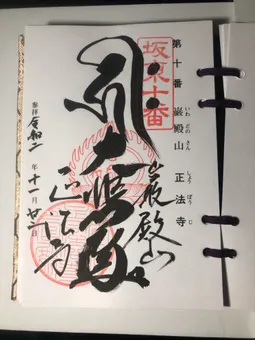 第十番 巌殿山 正法寺
いわ どの さん しょう ぼう じ
坂東十番
巌殿山
正法寺
奉拝 令和二年十一月 日